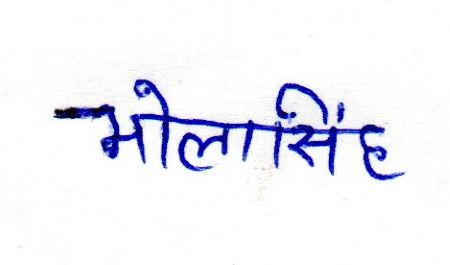 भोलासिंह